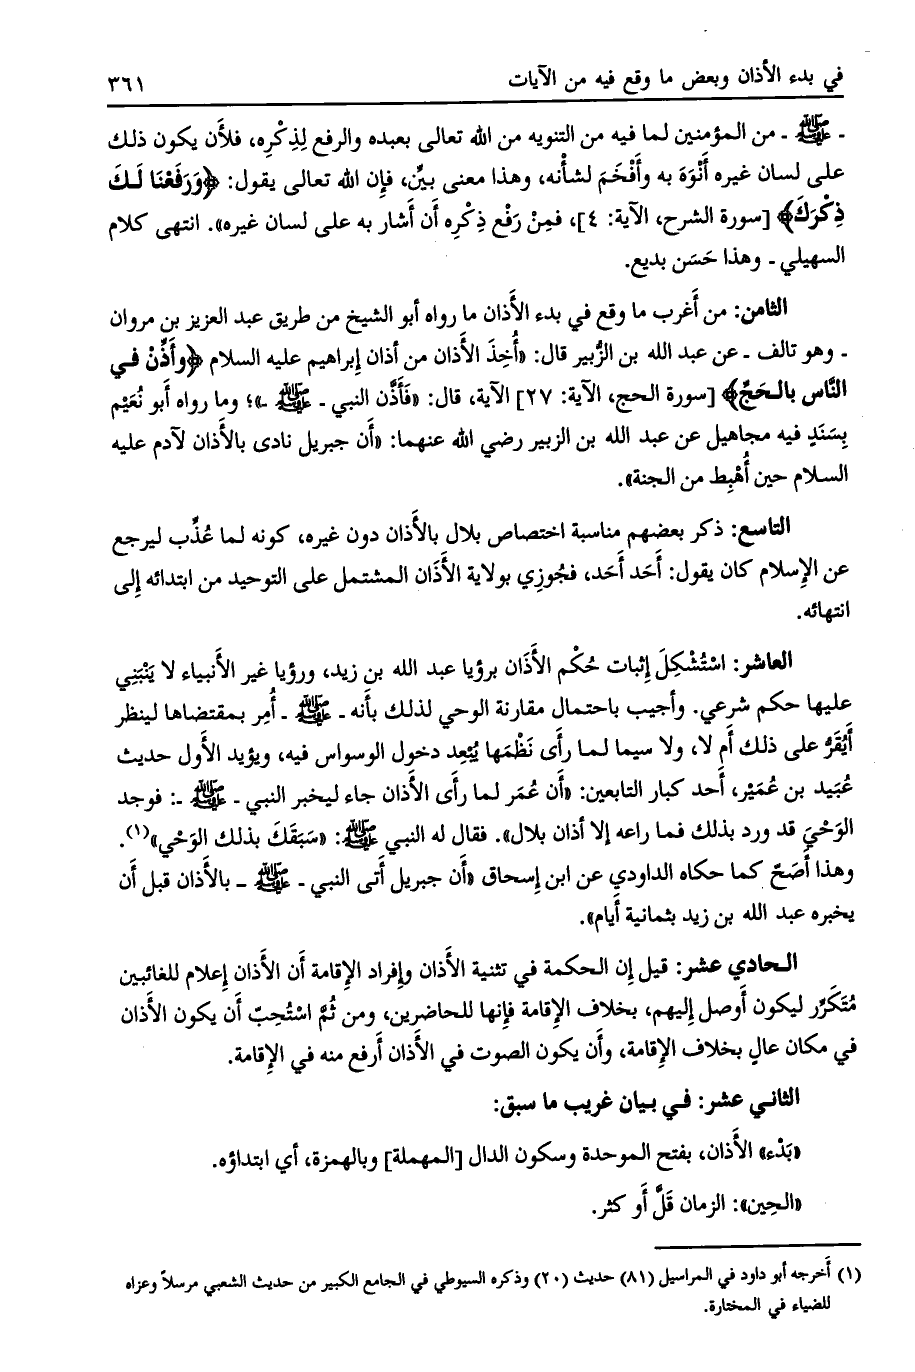 في بدء الأذان وبعض ما وقع فيه من الآيات ٣٦١
ـ ﷺ ـ من المؤمنين لما فيه من التنويه من الله تعالى بعبده والرفع لِذِكْرِه، فلأَن يكون ذلك
على لسان غيره أَنْوَهَ به وأَفْخَمَ لشأْنه، وهذا معنى بيِّن، فإِن الله تعالى يقول: ﴿وَرَفَعْنَا لَكَ
ذِكْرَكَ﴾ [سورة الشرح، الآية: ٤]، فمِنْ رَفْع ذِكْرِه أَن أَشار به على لسان غيره». انتهى كلام
السهيلي ـ وهذا حَسَن بديع.
الثامن: من أَغرب ما وقع في بدء الأَذان ما رواه أبو الشيخ من طريق عبد العزيز بن مروان
ـ وهو تالف ـ عن عبد الله بن الزُّبير قال: «أُخِذَ الأَذان من أذان إِبراهيم عليه السلام ﴿وأَذِّنْ في
النَّاس بالحَجِّ﴾ [سورة الحج، الآية: ٢٧] الآية، قال: «فَأَذَّن النبي ـ ﷺ ـ»؛ وما رواه أبو نُعَيْم
بِسَنَدٍ فيه مجاهيل عن عبد الله بن الزبير رضي الله عنهما: «أَن جبريل نادى بالأذان لآدم عليه
السلام حين أُهْبِط من الجنة».
التاسع: ذكر بعضهم مناسبة اختصاص بلال بالأَذان دون غيره، كونه لما عُذِّب ليرجع
عن الإِسلام كان يقول: أَحَد أَحَد، فجُوزِي بولاية الأَذَان المشتمل على التوحيد من ابتدائه إِلى
انتهائه.
العاشر: اسْتُشْكِلَ إِثبات حُكْم الأَذَان برؤيا عبد الله بن زيد، ورؤيا غير الأَنبياء لا يَنْبَنِي
عليها حكم شرعي. وأجيب باحتمال مقارنة الوحي لذلك بأَنه ـ ﷺ ـ أُمِر بمقتضاها لينظر
أَيُقَرُّ على ذلك أَم لا، ولا سيما لما رأى نَظْمَها يُبْعِد دخول الوسواس فيه، ويؤيد الأَول حديث
عُبَيد بن عُمَيْر، أَحد كبار التابعين: «أَن عُمَر لما رأى الأَذان جاء ليخبر النبي ـ ﷺ ـ: فوجد
الوَحْيَ قد ورد بذلك فما راعه إلا أذان بلال». فقال له النبي ﷺ: «سَبَقَكَ بذلك الوَحْي»(١).
وهذا أَصَحّ كما حكاه الداودي عن ابن إِسحاق «أَن جبريل أَتى النبي ـ ﷺ ـ بالأَذان قبل أن
يخبره عبد الله بن زيد بثمانية أَيام».
الحادي عشر: قيل إن الحكمة في تثنية الأَذان وإِفراد الإِقامة أَن الأَذان إِعلام للغائبين
مُتَكَرِّر ليكون أَوصل إِليهم، بخلاف الإِقامة فإِنها للحاضرين، ومن ثُمَّ اسْتُحِبّ أَن يكون الأَذان
في مكان عالٍ بخلاف الإِقامة، وأَن يكون الصوت في الأَذان أَرفع منه في الإِقامة.
الثاني عشر: في بيان غريب ما سبق:
«بَدْء» الأَذان، بفتح الموحدة وسكون الدال [المهملة] وبالهمزة، أي ابتداؤه.
«الحِين»: الزمان قَلَّ أَو كثر.
(١) أَخرجه أبو داود في المراسيل (٨١) حديث (٢٠) وذكره السيوطي في الجامع الكبير من حديث الشعبي مرسلاً وعزاه
للضياء في المختارة.